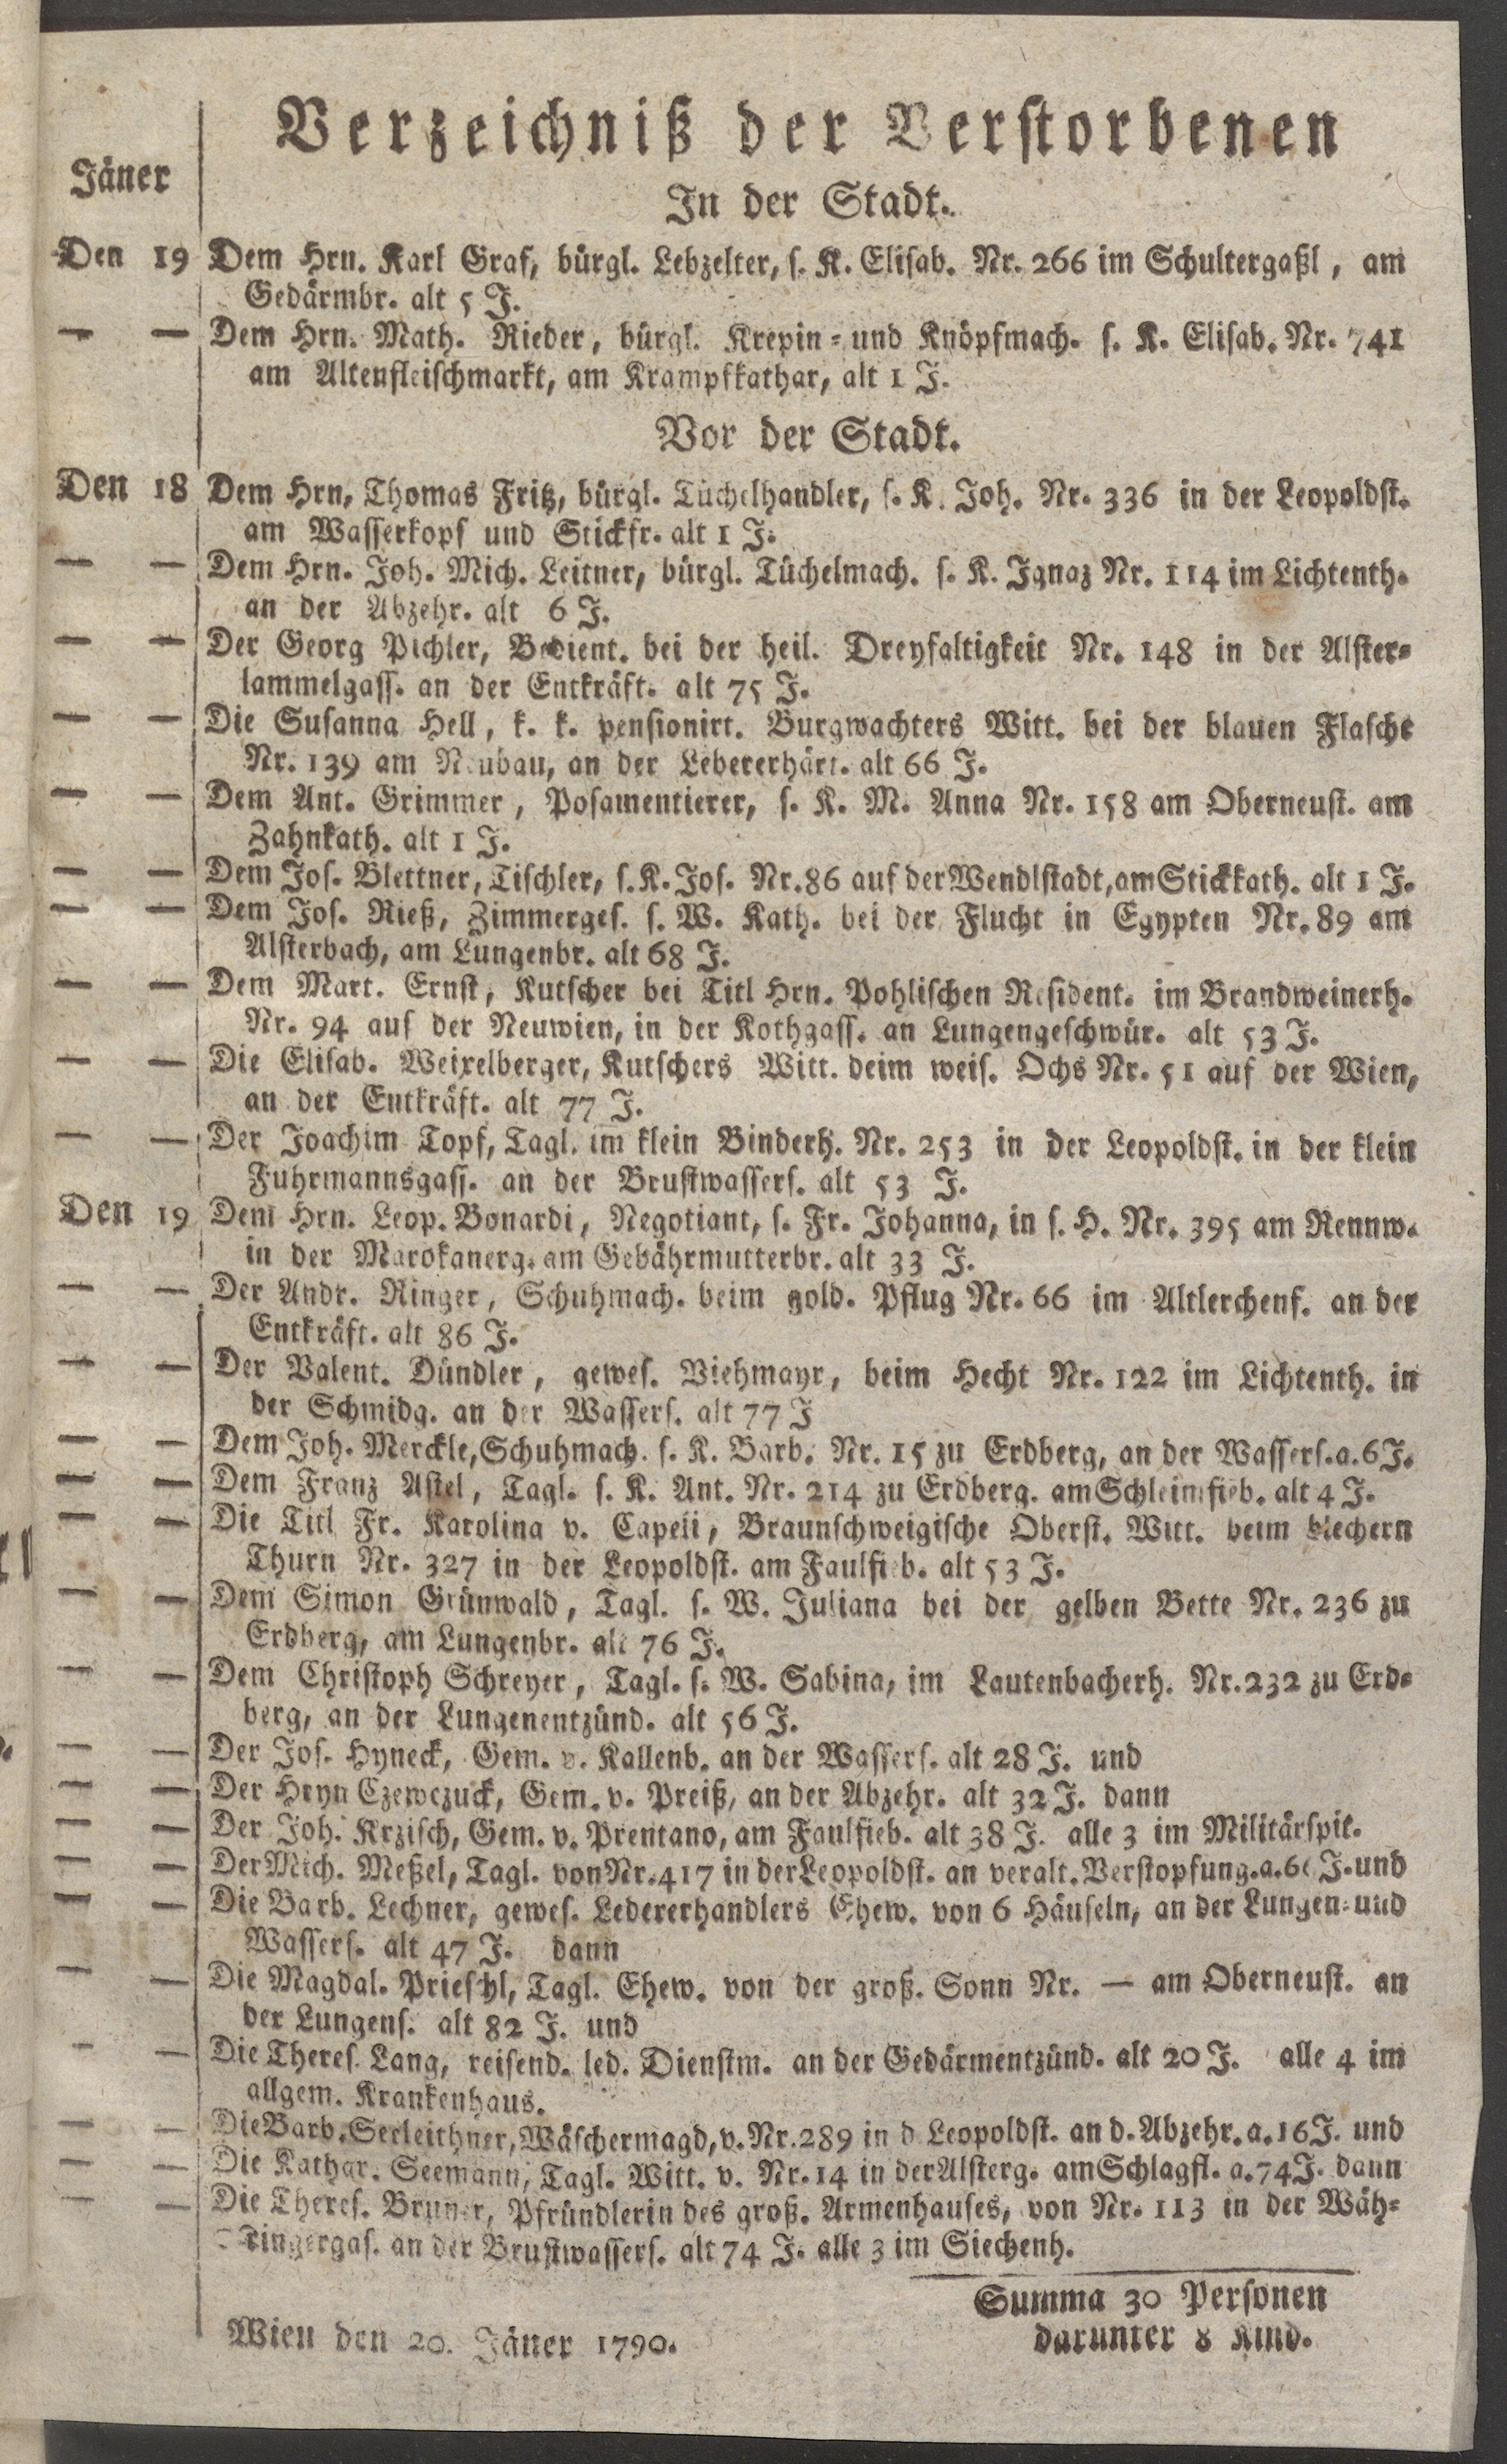 Verzeichniß der Verstorbenen
Jäner
In der Stadt.
Den 19 Dem Hrn. Karl Graf, bürgl. Lebzelter, s. K. Elisab. Nr. 266 im Schultergaßl, am
Gedärmbr. alt 5 J.
— — Dem Hrn. Math. Rieder, bürgl. Krepin- und Knöpfmach. s. K. Elisab. Nr. 741
am Altenfleischmarkt, am Krampfkathar, alt 1 J.
Vor der Stadt.
Den 18 Dem Hrn. Thomas Fritz, bürgl. Tüchelhandler, s. K. Joh. Nr. 336 in der Leopoldst.
am Wasserkopf und Stickfr. alt 1 J.
— — Dem Hrn. Joh. Mich. Leitner, bürgl. Tüchelmach. s. K. Ignaz Nr. 114 im Lichtenth.
an der Abzehr. alt 6 J.
— — Der Georg Pichler, Bedient. bei der heil. Dreyfaltigkeit Nr. 148 in der Alster-
lammelgass. an der Entkräft. alt 75 J.
— — Die Susanna Hell, k. k. pensionirt. Burgwachters Witt. bei der blauen Flasche
Nr. 139 am Neubau, an der Lebererhärt. alt 66 J.
— — Dem Ant. Grimmer, Posamentierer, s. K. M. Anna Nr. 158 am Oberneust. am
Zahnkath. alt 1 J.
— — Dem Jos. Blettner, Tischler, s. K. Jos. Nr. 86 auf der Wendlstadt, am Stickkath. alt 1 J.
— — Dem Jos. Rieß, Zimmerges. s. W. Kath. bei der Flucht in Egypten Nr. 89 am
Alsterbach, am Lungenbr. alt 68 J.
— — Dem Mart. Ernst, Kutscher bei Titl Hrn. Pohlischen Resident. im Brandweinerh.
Nr. 94 auf der Neuwien, in der Kothgass. an Lungengeschwür. alt 53 J.
— — Die Elisab. Weixelberger, Kutschers Witt. deim weis. Ochs Nr. 51 auf der Wien,
an der Entkräft. alt 77 J.
— — Der Joachim Topf, Tagl. im klein Binderh. Nr. 253 in der Leopoldst. in der klein
Fuhrmannsgass. an der Brustwassers. alt 53 J.
Den 19 Dem Hrn. Leop. Bonardi, Negotiant, s. Fr. Johanna, in s. H. Nr. 395 am Rennw.
in der Marokanerg. am Gebährmutterbr. alt 33 J.
— — Der Andr. Ringer, Schuhmach. beim gold. Pflug Nr. 66 im Altlerchenf. an der
Entkräft. alt 86 J.
— — Der Valent. Dündler, gewes. Viehmayr, beim Hecht Nr. 122 im Lichtenth. in
der Schmidg. an der Wassers. alt 77 J
— — Dem Joh. Merckle, Schuhmach. s. K. Barb. Nr. 15 zu Erdberg, an der Wassers. a. 6 J.
— — Dem Franz Astel, Tagl. s. K. Ant. Nr. 214 zu Erdberg. am Schleimfieb. alt 4 J.
— — Die Titl Fr. Karolina v. Braunschweigische Oberst. Witt. beim blechern
Thurn Nr. 327 in der Leopoldst. am Faulfieb. alt 53 J.
— — Dem Simon Grünwald, Tagl. s. W. Juliana bei der gelben Bette Nr. 236 zu
Erdberg, am Lungenbr. alt 76 J.
— — Dem Christoph Schreyer, Tagl. s. W. Sabina, im Lautenbacherh. Nr. 232 zu Erd-
berg, an der Lungenentzünd. alt 56 J.
— — Der Jos. Hyneck, Gem. v. Kallenb. an der Wassers. alt 28 J. und
— — Der Hryn Czewczuck, Gem. v. Preiß, an der Abzehr. alt 32 J. dann
— — Der Joh. Krzisch, Gem. v. Prentano, am Faulfieb. alt 38 J. alle 3 im Militärspit.
— — Der Mich. Meßel, Tagl. von Nr. 417 in der Leopoldst. an veralt. Verstopfung. a. J. und
— — Die Barb. Lechner, gewes. Ledererhandlers Ehew. von 6 Häuseln, an der Lungen- und
Wassers. alt 47 J. dann
— — Die Magdal. Prieschl, Tagl. Ehew. von der groß. Sonn Nr. — am Oberneust. an
der Lungens. alt 82 J. und
— — Die Theres. Lang, reisend. led. Dienstm. an der Gedärmentzünd. alt 20 J. alle 4 im
allgem. Krankenhaus.
— — Die Barb. Seeleithner, Wäschermagd, v. Nr. 289 in d. Leopoldst. an d. Abzehr. a. 16 J. und
— — Die Kathar. Seemann, Tagl. Witt. v. Nr. 14 in der Alsterg. am Schlagfl. a. 74 J. dann
— — Die Theres. Bruner, Pfründlerin des groß. Armenhauses, von Nr. 113 in der Wäh-
ringergas. an der Brustwassers. alt 74 J. alle 3 im Siechenh.
Summa 30 Personen
darunter 8 Kind.
Wien den 20. Jäner 1790.